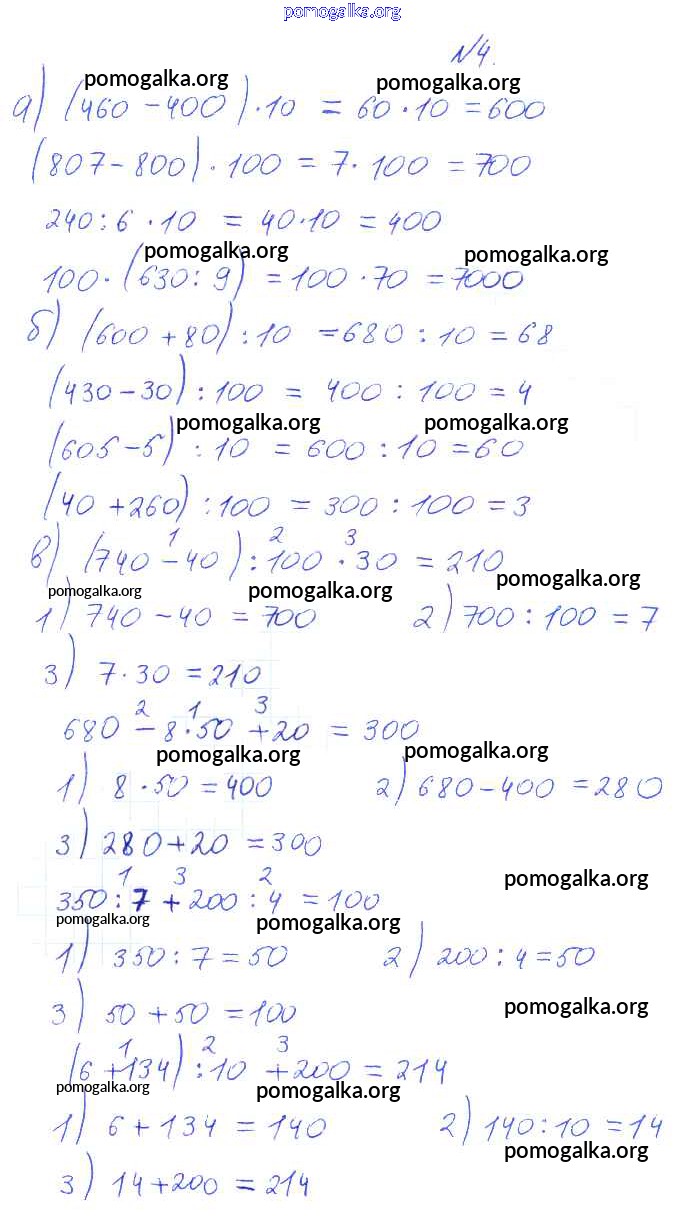 pomogalka.org
№4.
pomogalka.org pomogalka.org
а) (460 – 400) · 10 = 60 · 10 = 600
(807 – 800) · 100 = 7 · 100 = 700
240 : 6 · 10 = 40 · 10 = 400
pomogalka.org pomogalka.org
100 · (630 : 9) = 100 · 70 = 7000
б) (600 + 80) : 10 = 680 : 10 = 68
(430 – 30) : 100 = 400 : 100 = 4
pomogalka.org pomogalka.org
(605 – 5) : 10 = 600 : 10 = 60
(40 + 260) : 100 = 300 : 100 = 3
1 2 3
в) (740 – 40) : 100 · 30 = 210
pomogalka.org pomogalka.org pomogalka.org
1) 740 – 40 = 700 2) 700 : 100 = 7
3) 7 · 30 = 210
2 1 3
680 – 8 · 50 + 20 = 300
pomogalka.org pomogalka.org
1) 8 · 50 = 400 2) 680 – 400 = 280
3) 280 + 20 = 300
1 3 2 pomogalka.org
350 : 7 + 200 : 4 = 100
pomogalka.org pomogalka.org
1) 350 : 7 = 50 2) 200 : 4 = 50
3) 50 + 50 = 100 pomogalka.org
1 2 3
(6 + 134) : 10 + 200 = 214
pomogalka.org pomogalka.org
1) 6 + 134 = 140 2) 140 : 10 = 14
pomogalka.org
3) 14 + 200 = 214